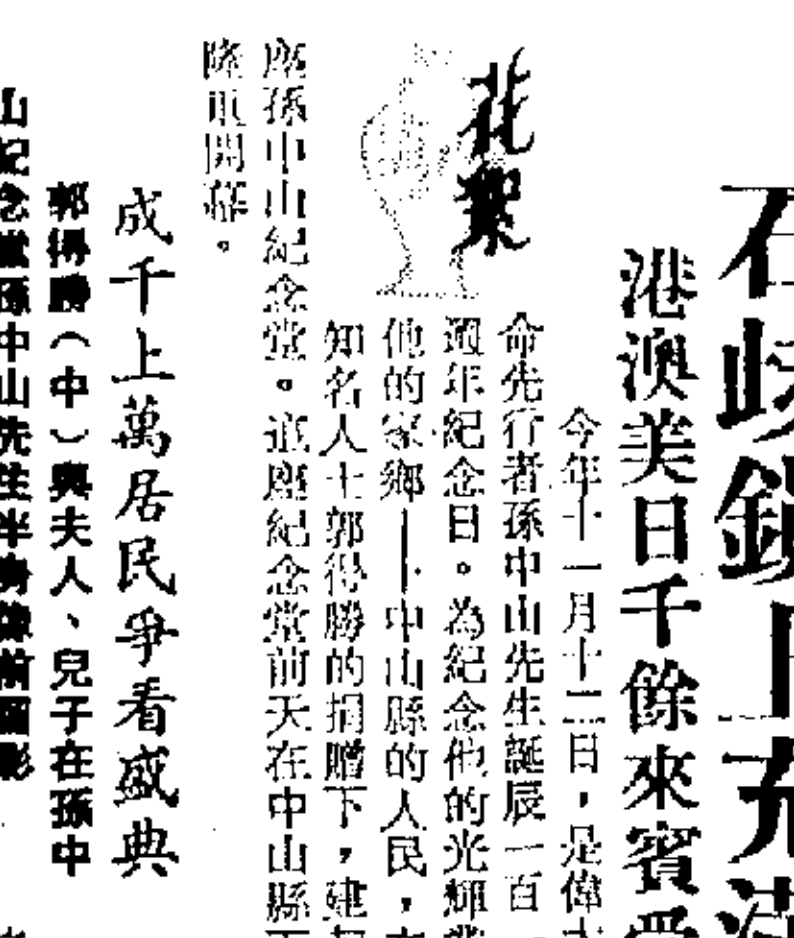 石歧鎮上充滿
港澳美日千餘來賓
花絮
今年十一月十二日，是偉大
命先行者孫中山先生誕辰一百一
週年紀念日。為紀念他的光輝業
他的家鄉——中山縣的人民，在
知名人士郭得勝的捐贈下，建起
座孫中山紀念堂。這座紀念堂前天在中山縣石
隆重開幕。
成千上萬居民爭看盛典
郭得勝（中）與夫人、兒子在孫中
山紀念堂孫中山先生半身像前留影